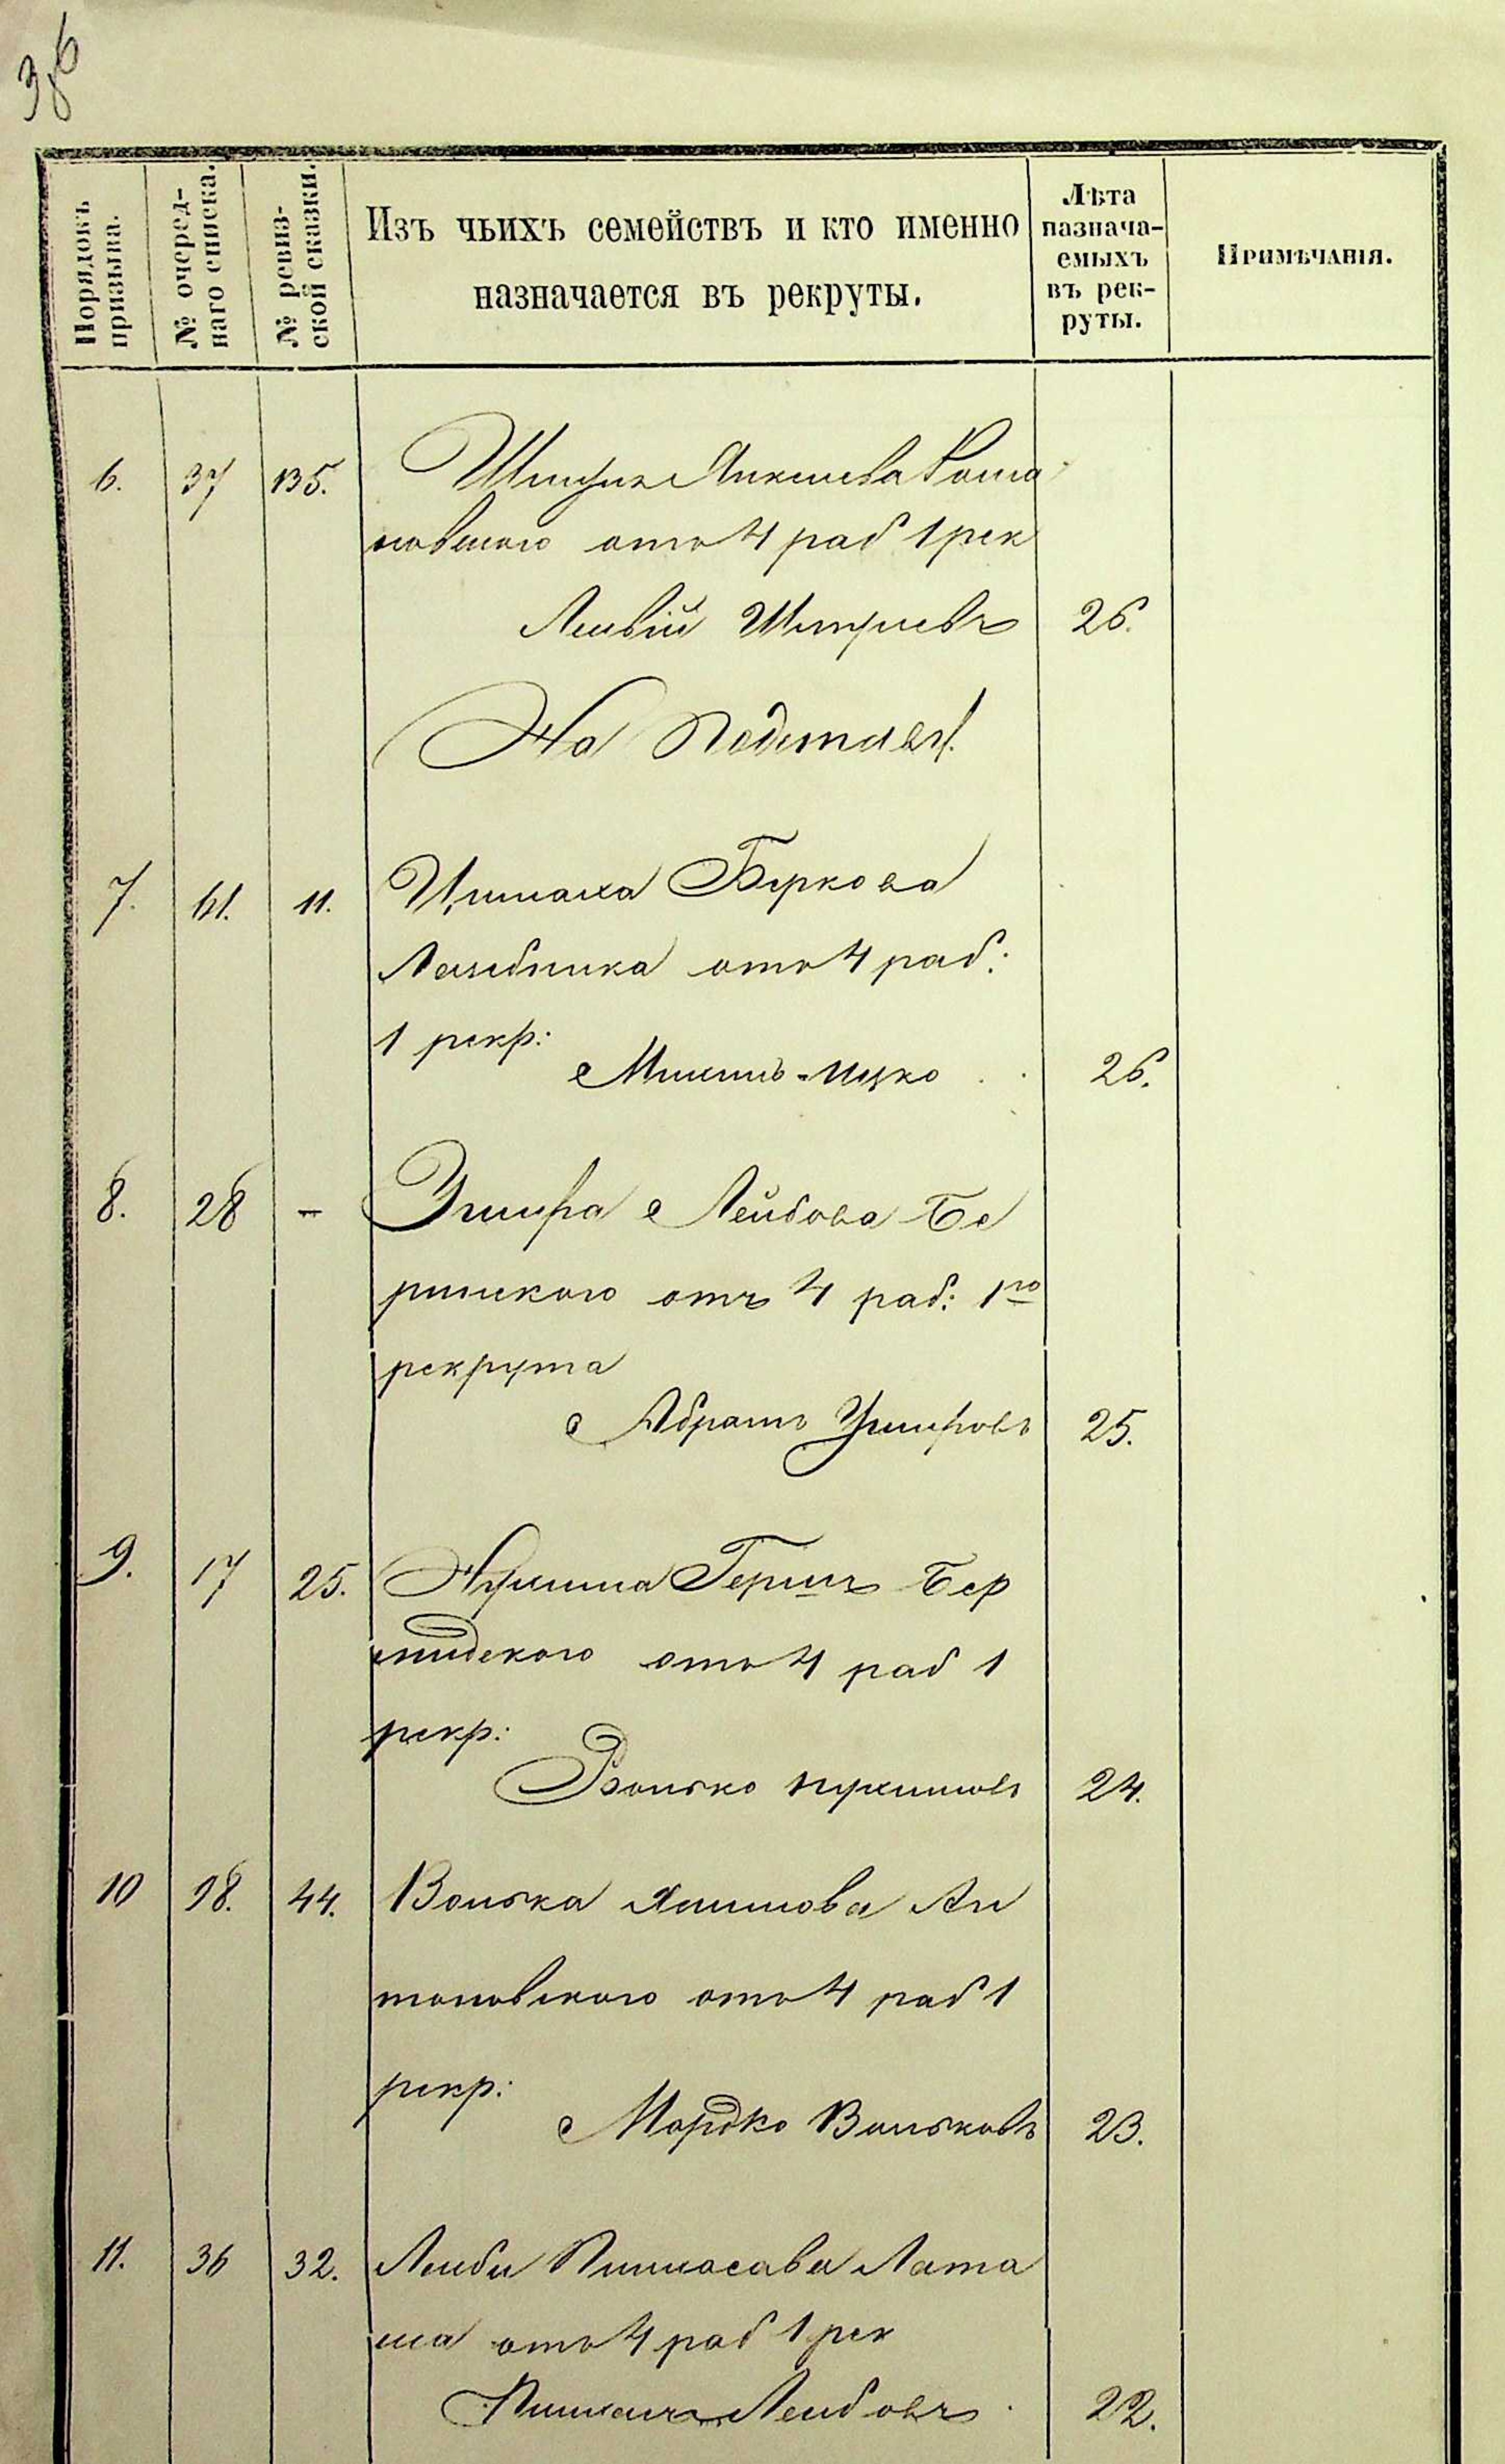 36
Порядокъ призыва.
№ очеред-
наго списка.
№ ревиз-
ской сказки.
Изъ чьихъ семействъ и кто именно
назначается въ рекруты.
Лѣта
назнача-
емыхъ
въ рек-
руты.
Примѣчанія.
6. 37 135.
новскаго отъ 4 раб 1 рек
26.
На Подставу.
7. 61. 11. Цимаха Беркова
отъ 4 раб:
1 рекр:
Ицко 26.
8. 28 - Лейбова Бе
ринскаго отъ 4 раб: 1го
рекрута
Абрамъ 25.
9. 17 25. Нухима Герша Бер
отъ 4 раб 1
рекр:
Волько Нухимовъ 24.
10 18. 44. Волька Хаимова Ан
тоновскаго отъ 4 раб 1
рекр:
Мордко Вольковъ 23.
11. 36 32. Лейбы Пинхасова Лата
ша отъ 4 раб 1 рек
Пинхасъ Лейбовъ 22.